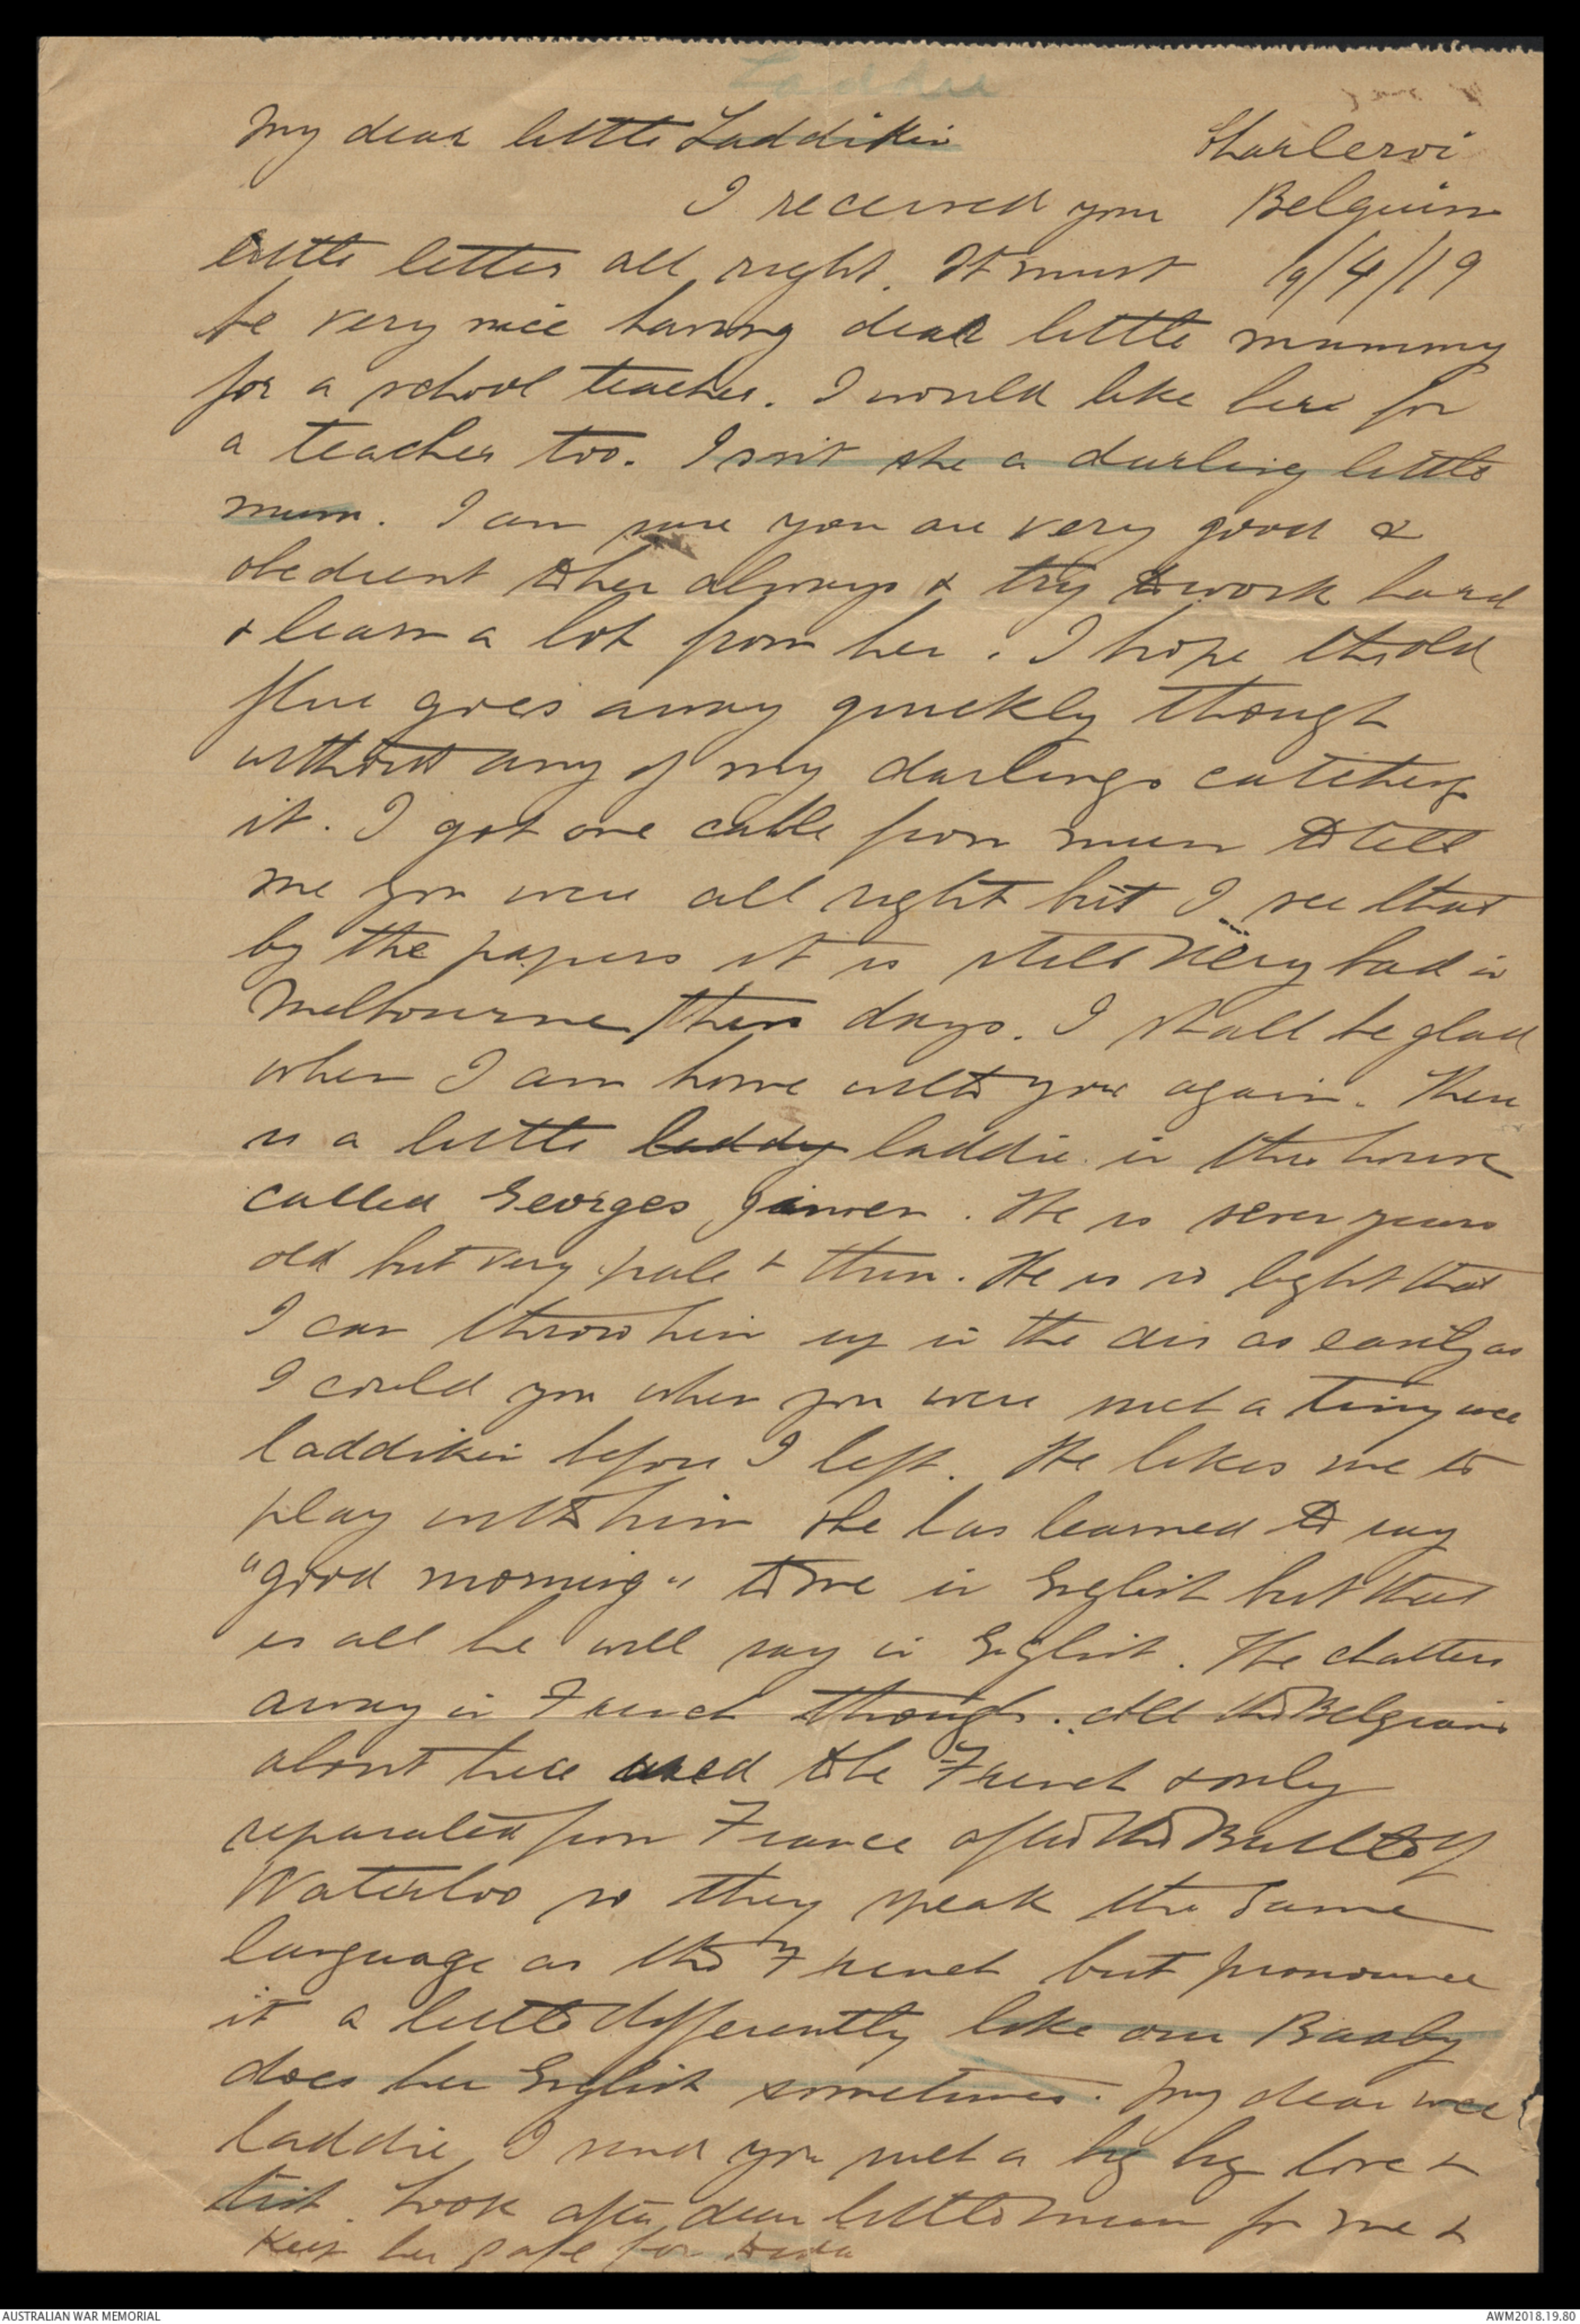 Laddie
My dear little Laddikin Charleroi
I received your Belguim
little letter all right. It must 19/4/19
be very nice having dear little mummy
for a school teacher. I would like her for
a teacher too. Isn't she a darling little
mum. I am sure you are very good &
obedient to her always & try to work hard
& learn a lot from her. I hope the old
flue goes away quickly though
without any of my darlings catching
it. I got one cable from mum to tell
me you were all right but I see that
by the papers it is still very bad in
Melbourne these days. I shall be glad
when I am home with you again. There
is a little laddy laddie in this house
called Georges . He is seven years
old but very pale & thin. He is so light that
I can throw him up in the air as easily as
I could you when you were such a tiny wee
laddikin before I left. He likes me to
play with him & he has learned to say
"good morning" to me in English but that
is all he will say in English. He chatters
away in French though. All the Belgians
about here used to be French & only
separated from France after the Battle of
Waterloo so they speak the same
language as the French but pronounce
it a little differently like our Baaby
does her English sometimes. My dear wee
laddie I send you such a big big love &
tist. Look after dear little mum for me &
Keep her safe for Dida
AUSTRALIAN WAR MEMORIAL AWM2018.19.80